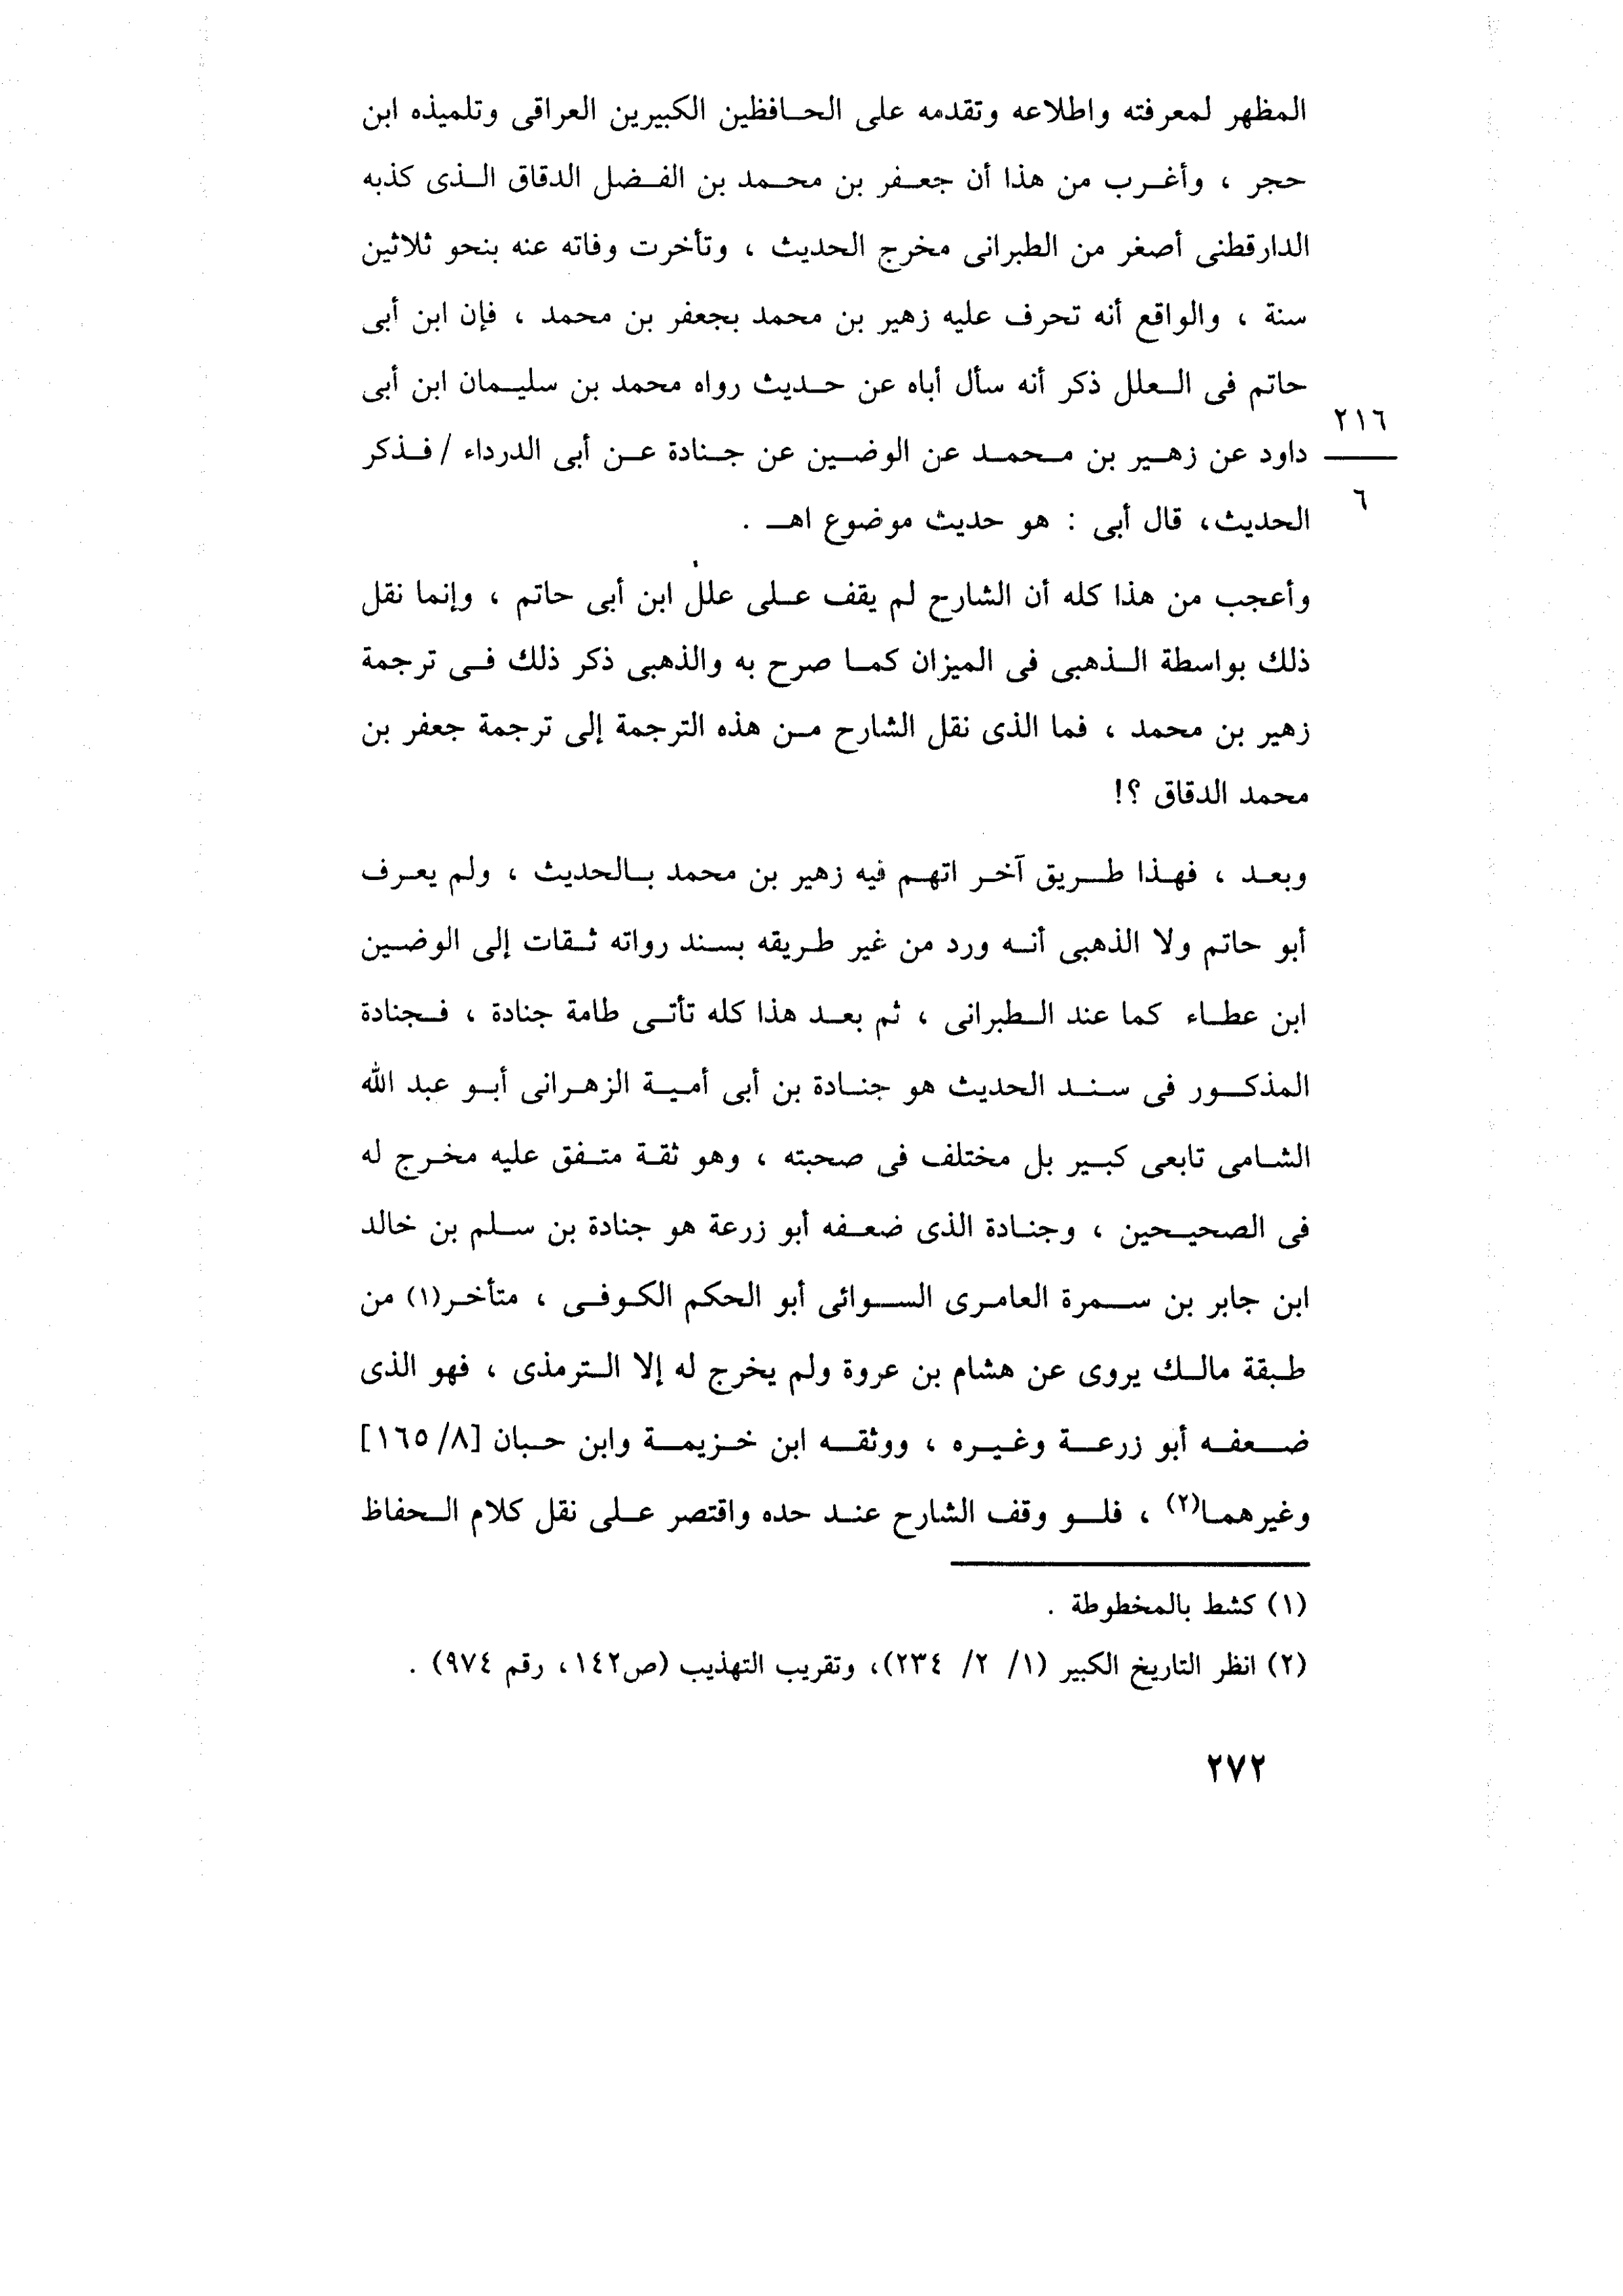 المظهر لمعرفته واطلاعه وتقدمه على الحافظين الكبيرين العراقى وتلميذه ابن
حجر ، وأغرب من هذا أن جعفر بن محمد بن الفضل الدقاق الذى كذبه
الدارقطنى أصغر من الطبرانى مخرج الحديث ، وتأخرت وفاته عنه بنحو ثلاثين
سنة ، والواقع أنه تحرف عليه زهير بن محمد بجعفر بن محمد ، فإن ابن أبى
حاتم فى العلل ذكر أنه سأل أباه عن حديث رواه محمد بن سليمان ابن أبى
٢١٦
داود عن زهير بن محمد عن الوضين عن جنادة عن أبى الدرداء / فذكر
٦
الحديث، قال أبى : هو حديث موضوع اهـ .
وأعجب من هذا كله أن الشارح لم يقف على علل ابن أبى حاتم ، وإنما نقل
ذلك بواسطة الذهبى فى الميزان كما صرح به والذهبى ذكر ذلك فى ترجمة
زهير بن محمد ، فما الذى نقل الشارح من هذه الترجمة إلى ترجمة جعفر بن
محمد الدقاق ؟!
وبعد ، فهذا طريق آخر اتهم فيه زهير بن محمد بالحديث ، ولم يعرف
أبو حاتم ولا الذهبى أنه ورد من غير طريقه بسند رواته ثقات إلى الوضين
ابن عطاء كما عند الطبرانى ، ثم بعد هذا كله تأتى طامة جنادة ، فجنادة
المذكور فى سند الحديث هو جنادة بن أبى أمية الزهرانى أبو عبد الله
الشامى تابعى كبير بل مختلف فى صحبته ، وهو ثقة متفق عليه مخرج له
فى الصحيحين ، وجنادة الذى ضعفه أبو زرعة هو جنادة بن سلم بن خالد
ابن جابر بن سمرة العامرى السوائى أبو الحكم الكوفى ، متأخر(١) من
طبقة مالك يروى عن هشام بن عروة ولم يخرج له إلا الترمذى ، فهو الذى
ضعفه أبو زرعة وغيره ، ووثقه ابن خزيمة وابن حبان [٨/ ١٦٥]
وغيرهما(٢) ، فلو وقف الشارح عند حده واقتصر على نقل كلام الحفاظ
(١) كشط بالمخطوطة .
(٢) انظر التاريخ الكبير (١/ ٢/ ٢٣٤)، وتقريب التهذيب (ص١٤٢، رقم ٩٧٤) .
٢٧٢